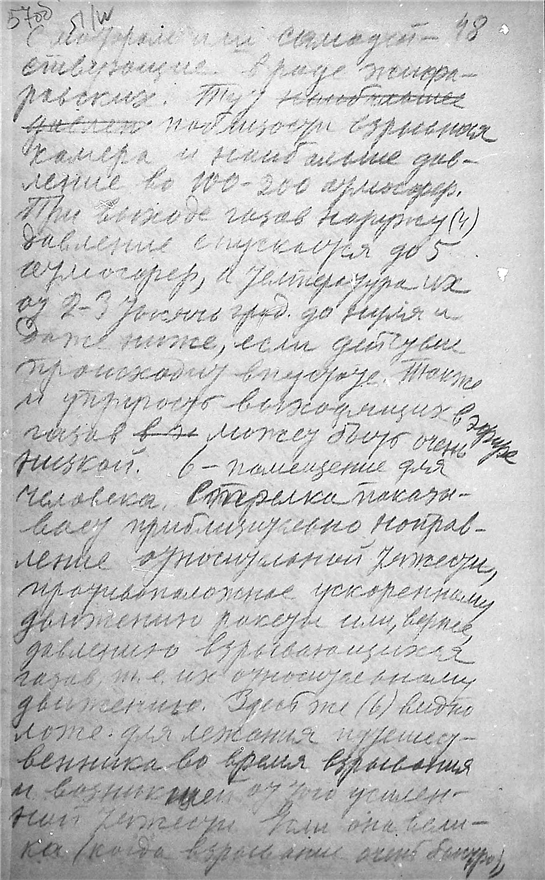 570б 48
с мотором или самодей-
ствующие вроде жифа-
ровских. Тут наибольшее
давлен. поблизости взрывная
камера и наибольше дав-
ление во 100-200 атмосфер.
При выходе газов наружу (4)
давление спускается до 5
атмосфер, а температура их
от 2-3 тысяч град. до нуля и
даже ниже, если действие
происходит в пустоте. Также
и упругость выходящих в эфире
газов в н может быть очень
низкой. 6 - помещение для
человека. Стрелка показы-
вает приблизительно направ-
ление относительной тяжести,
противоположное ускоренному
движению ракеты или, вернее,
давлению взрывающихся
газов, т. е. их относительному
движению. Здесь же (6) видно
ложе для лежания путешест-
венника во время взрывания
и возникшей от того усилен-
ной тяжести. Если она вели-
ка (когда взрывание очень быстро),